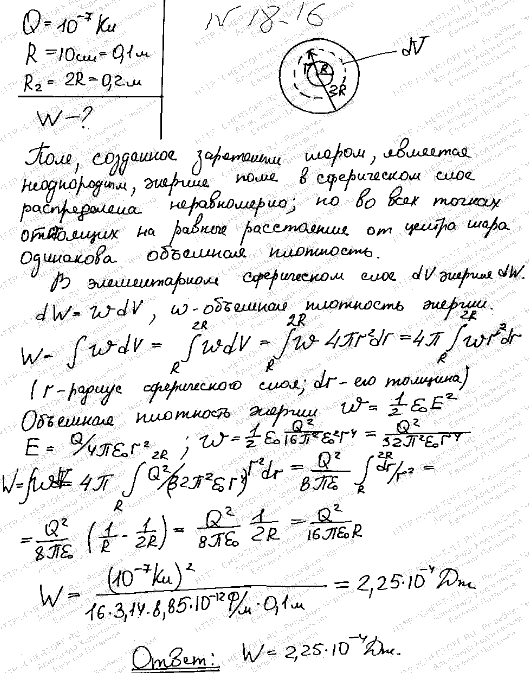 N 18-16
Q = 10⁻⁷ Кл
R = 10см = 0,1м
R₂ = 2R = 0,2м
W - ?
dV
r
R
2R
Поле, созданное заряженным шаром, является
неоднородным, энергия поля в сферическом слое
распределена неравномерно; но во всех точках
отстоящих на равные расстояние от центра шара
одинакова объемная плотность.
В элементарном сферическом слое dV энергия dW.
dW = w dV, w - объемная плотность энергии.
W = ∫ w dV = ∫_R^{2R} w dV = ∫_R^{2R} w 4πr²dr = 4π ∫_R^{2R} w r² dr
(r - радиус сферического слоя; dr - его толщина)
Объемная плотность энергии w = 1/2 ε₀E²
E = Q/4πε₀r² ; w = 1/2 ε₀ Q²/16π²ε₀²r⁴ = Q²/32π²ε₀r⁴
W = ∫wdV = 4π ∫_R^{2R} Q²/(32π²ε₀r⁴) r²dr = Q²/8πε₀ ∫_R^{2R} dr/r² =
= Q²/8πε₀ (1/R - 1/2R) = Q²/8πε₀ 1/2R = Q²/16πε₀R
W = (10⁻⁷Кл)²/16·3,14·8,85·10⁻¹² Ф/м·0,1м = 2,25·10⁻⁴ Дж
Ответ: W = 2,25·10⁻⁴ Дж.